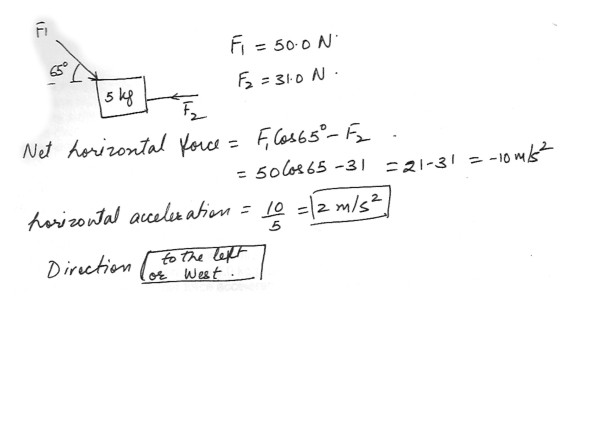 F̄1
F1 = 50.0 N
65°
F2 = 31.0 N.
5 kg
F̄2
Net horizontal force = F1 Cos65° - F2.
= 50 Cos 65 - 31 = 21-31 = -10 m/s²
horizontal acceleration = 10/5 = 2 m/s²
Direction to the left
or West.